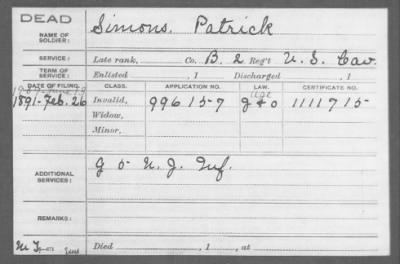 DEAD
NAME OF SOLDIER: Simons, Patrick
SERVICE: Late rank, Co. B. 2 Reg't U. S. Cav.
TERM OF SERVICE: Enlisted , 1 Discharged , 1
DATE OF FILING. CLASS. APPLICATION NO. LAW. CERTIFICATE NO.
Age
1891-Feb. 26 Invalid, 996157 g & o 1111715
Widow,
Minor,
ADDITIONAL SERVICES: G 5 N. J. Inf.
REMARKS:
Died , 1 , at